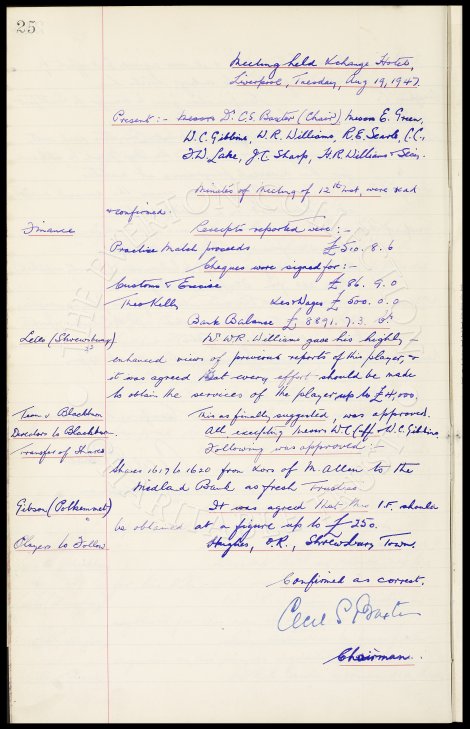 25
Meeting held Xchange Hotel,
Liverpool, Tuesday, Aug 19, 1947.
Present :- Messrs Dr C.S. Baxter (Chair), Messrs E. Green,
W.C. Gibbins, W.R. Williams, R.E. Searle,
J.C. Sharp, H.R. Williams &
Minutes of Meeting of 12th inst, were read
& confirmed.
Finance Receipts reported were :-
Practise Match proceeds £510. 8. 6
Cheques were signed for :-
Customs & Excise £ 86. 9. 0
Theo Kelly Wages £ 600. 0. 0
Bank Balance £ 8891. 7. 3.
(Shrewsbury) Mr W.R. Williams gave his highly -
enhanced views of previous reports of this player, &
it was agreed that every effort should be made
to obtain the services of the player, up to £4,000.
Team v Blackburn This as finally suggested, was approved.
Directors to Blackburn. All excepting Messrs W.C. Gibbins.
Transfer of Shares Following was approved :-
Shares 1617 to 1620 from Exors of M. Allen to the
Midland Bank as fresh Trustees.
Gibson (Polkemmet) It was agreed that this I.F. should
be obtained at a figure up to £250.
Players to Follow Hughes, O.R., Shrewsbury Town.
Confirmed as correct.
Cecil S Baxter
Chairman.
THE EVERTON COLLECTION
CHARITABLE TRUST